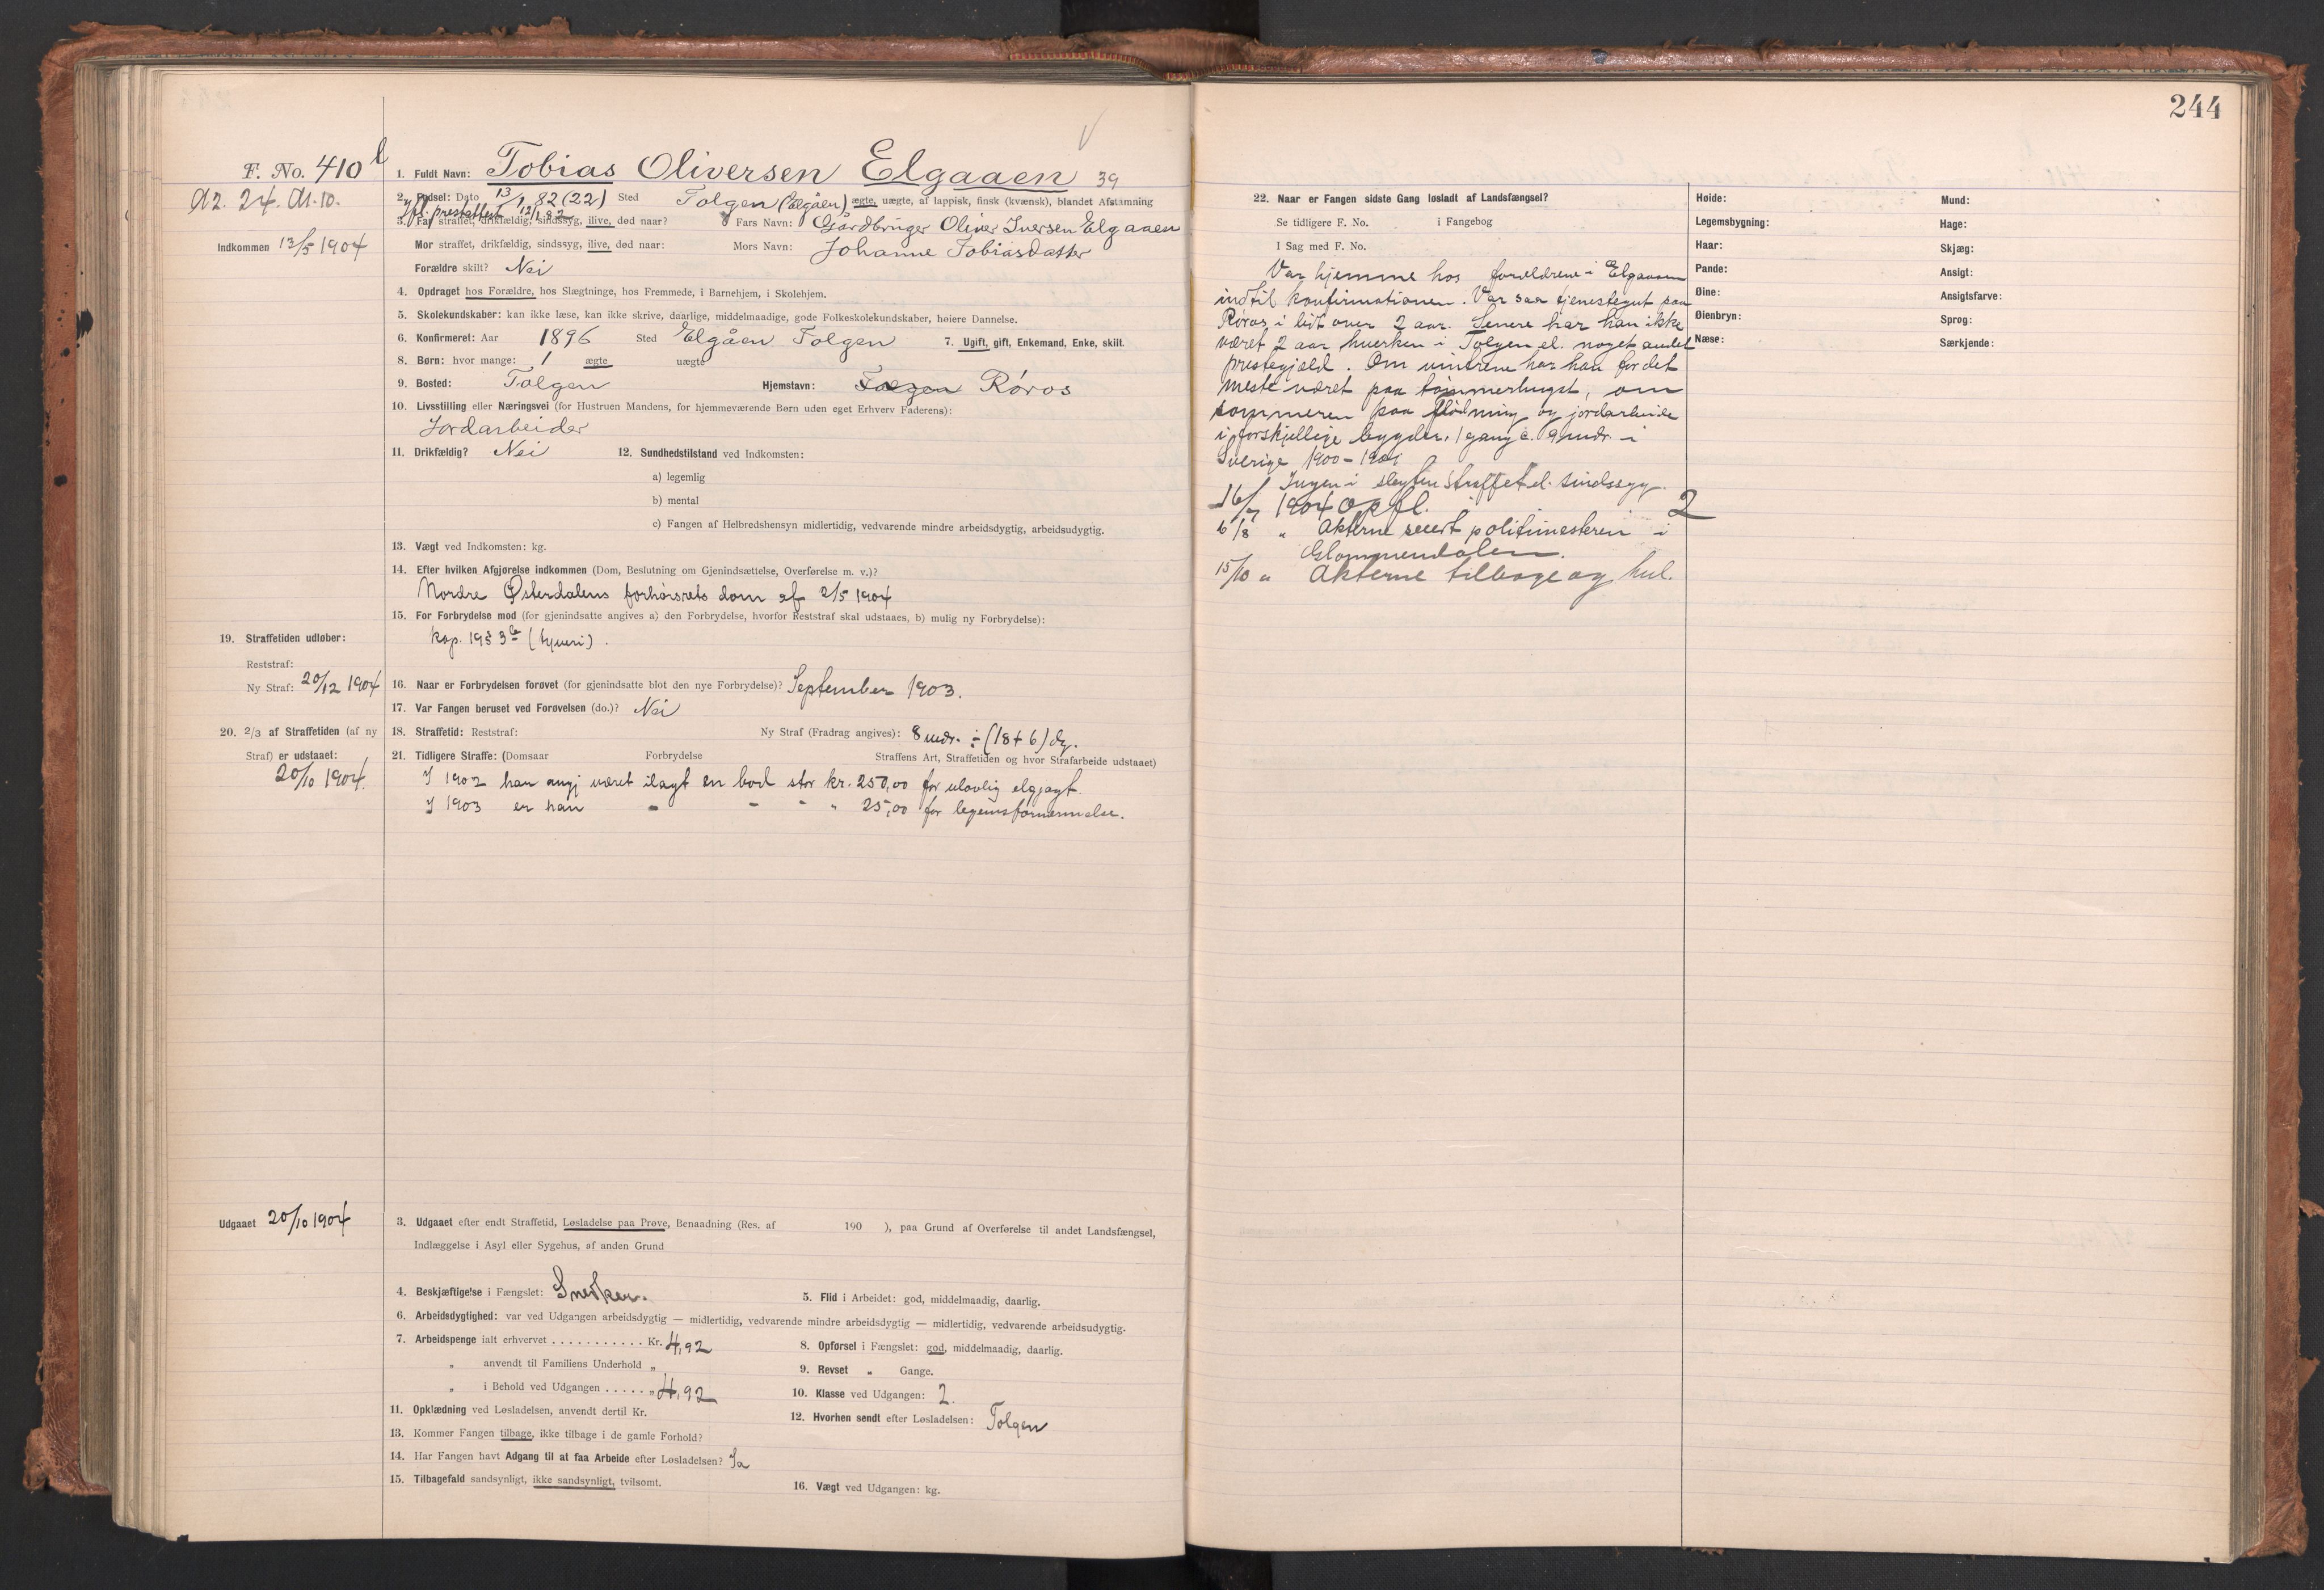 244
F. No. 410 b
A2. 24. A1. 10.
Indkommen 13/5 1904
1. Fuldt Navn: Tobias Oliversen Elgaaen 39
2. Fødsel: Dato 13/1 82 (22) Sted Tolgen (Elgåen) ægte, uægte, af lappisk, finsk (kvænsk), blandet Afstamning
fl. prestattest 12/1 82
3. Far straffet, drikfældig, sindssyg, ilive, død naar? Fars Navn: Gårdbruger Oliver Iversen Elgaaen
Mor straffet, drikfældig, sindssyg, ilive, død naar: Mors Navn: Johanne Tobiasdatter
Forældre skilt? Nei
4. Opdraget hos Forældre, hos Slægtninge, hos Fremmede, i Barnehjem, i Skolehjem.
5. Skolekundskaber: kan ikke læse, kan ikke skrive, daarlige, middelmaadige, gode Folkeskolekundskaber, høiere Dannelse.
6. Konfirmeret: Aar 1896 Sted Elgåen Tolgen 7. Ugift, gift, Enkemand, Enke, skilt.
8. Børn: hvor mange: 1 ægte uægte
9. Bosted: Tolgen Hjemstavn: Tolgen Røros
10. Livsstilling eller Næringsvei (for Hustruen Mandens, for hjemmeværende Børn uden eget Erhverv Faderens):
Jordarbeider
11. Drikfældig? Nei 12. Sundhedstilstand ved Indkomsten:
a) legemlig
b) mental
c) Fangen af Helbredshensyn midlertidig, vedvarende mindre arbeidsdygtig, arbeidsudygtig.
13. Vægt ved Indkomsten: kg.
14. Efter hvilken Afgjørelse indkommen (Dom, Beslutning om Gjenindsættelse, Overførelse m. v.)?
Nordre Østerdalens forhørsrets dom af 2/5 1904
15. For Forbrydelse mod (for gjenindsatte angives a) den Forbrydelse, hvorfor Reststraf skal udstaaes, b) mulig ny Forbrydelse):
kap. 19 § 3 b (tyveri).
19. Straffetiden udløber:
Reststraf:
Ny Straf: 20/12 1904
16. Naar er Forbrydelsen forøvet (for gjenindsatte blot den nye Forbrydelse)? September 1903.
17. Var Fangen beruset ved Forøvelsen (do.)? Nei
20. 2/3 af Straffetiden (af ny
Straf) er udstaaet:
20/10 1904.
18. Straffetid: Reststraf: Ny Straf (Fradrag angives): 8 mdr. ÷ (18 + 6) dg.
21. Tidligere Straffe: (Domsaar Forbrydelse Straffens Art, Straffetiden og hvor Strafarbeide udstaaet)
I 1902 han angj været ilagt en bod stor kr. 250,00 for ulovlig elgjagt.
I 1903 er han - - - " 25,00 for legemsfornærmelse.
Udgaaet 20/10 1904
3. Udgaaet efter endt Straffetid, Løsladelse paa Prøve, Benaadning (Res. af 190 ), paa Grund af Overførelse til andet Landsfængsel,
Indlæggelse i Asyl eller Sygehus, af anden Grund
4. Beskjæftigelse i Fængslet: Snedker. 5. Flid i Arbeidet: god, middelmaadig, daarlig.
6. Arbeidsdygtighed: var ved Udgangen arbeidsdygtig — midlertidig, vedvarende mindre arbeidsdygtig — midlertidig, vedvarende arbeidsudygtig.
7. Arbeidspenge ialt erhvervet . . . . . . . . . . . Kr. 4,92 8. Opførsel i Fængslet: god, middelmaadig, daarlig.
" anvendt til Familiens Underhold " 9. Revset " Gange.
" i Behold ved Udgangen . . . . . " 4,92 10. Klasse ved Udgangen: 2.
11. Opklædning ved Løsladelsen, anvendt dertil Kr. 12. Hvorhen sendt efter Løsladelsen: Tolgen
13. Kommer Fangen tilbage, ikke tilbage i de gamle Forhold?
14. Har Fangen havt Adgang til at faa Arbeide efter Løsladelsen? Ja
15. Tilbagefald sandsynligt, ikke sandsynligt, tvilsomt. 16. Vægt ved Udgangen: kg.
22. Naar er Fangen sidste Gang løsladt af Landsfængsel?
Se tidligere F. No. i Fangebog
I Sag med F. No.
Var hjemme hos forældrene i Elgaaen
indtil konfirmationen. Var saa tjenestegut paa
Røros i lidt over 2 aar. Senere har han ikke
været 2 aar hverken i Tolgen el. noget andet
prestegjeld. Om vintrene har han for det
meste været paa tømmerhugst, om
sommeren paa flødning og jordarbeide
i forskjellige bygder, 1 gang c. 9 mdr. i
Sverige 1900-1901
Ingen i slegten straffet el. sindssyg.
16/7 1904 opfl. 2
6/8 " Akterne sendt politimesteren i
Glommendalen.
15/10 " Akterne tilbage og hul.
Høide:
Legemsbygning:
Haar:
Pande:
Øine:
Øienbryn:
Næse:
Mund:
Hage:
Skjæg:
Ansigt:
Ansigtsfarve:
Sprog:
Særkjende: